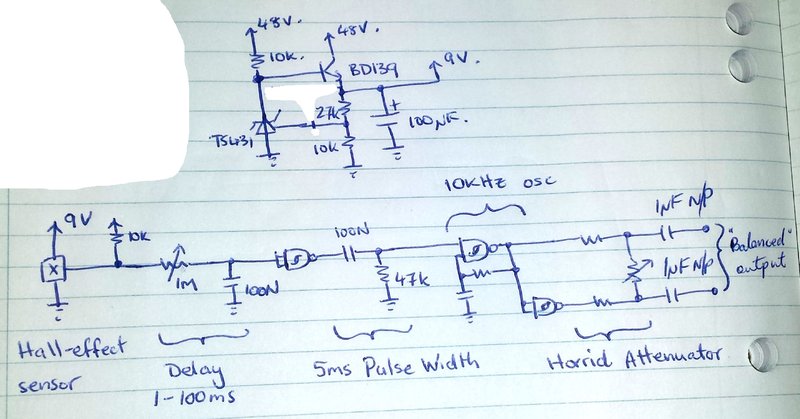 48V.
48V.
10k.
BD139
9V.
27k
+
100µF.
TS431
10k
10KHz OSC
9V
10k
X
1M
100N
100N
47k
1µF N/P
1µF N/P
"Balanced"
output
Hall-effect
sensor
Delay
1-100ms
5ms Pulse Width
Horrid Attenuator